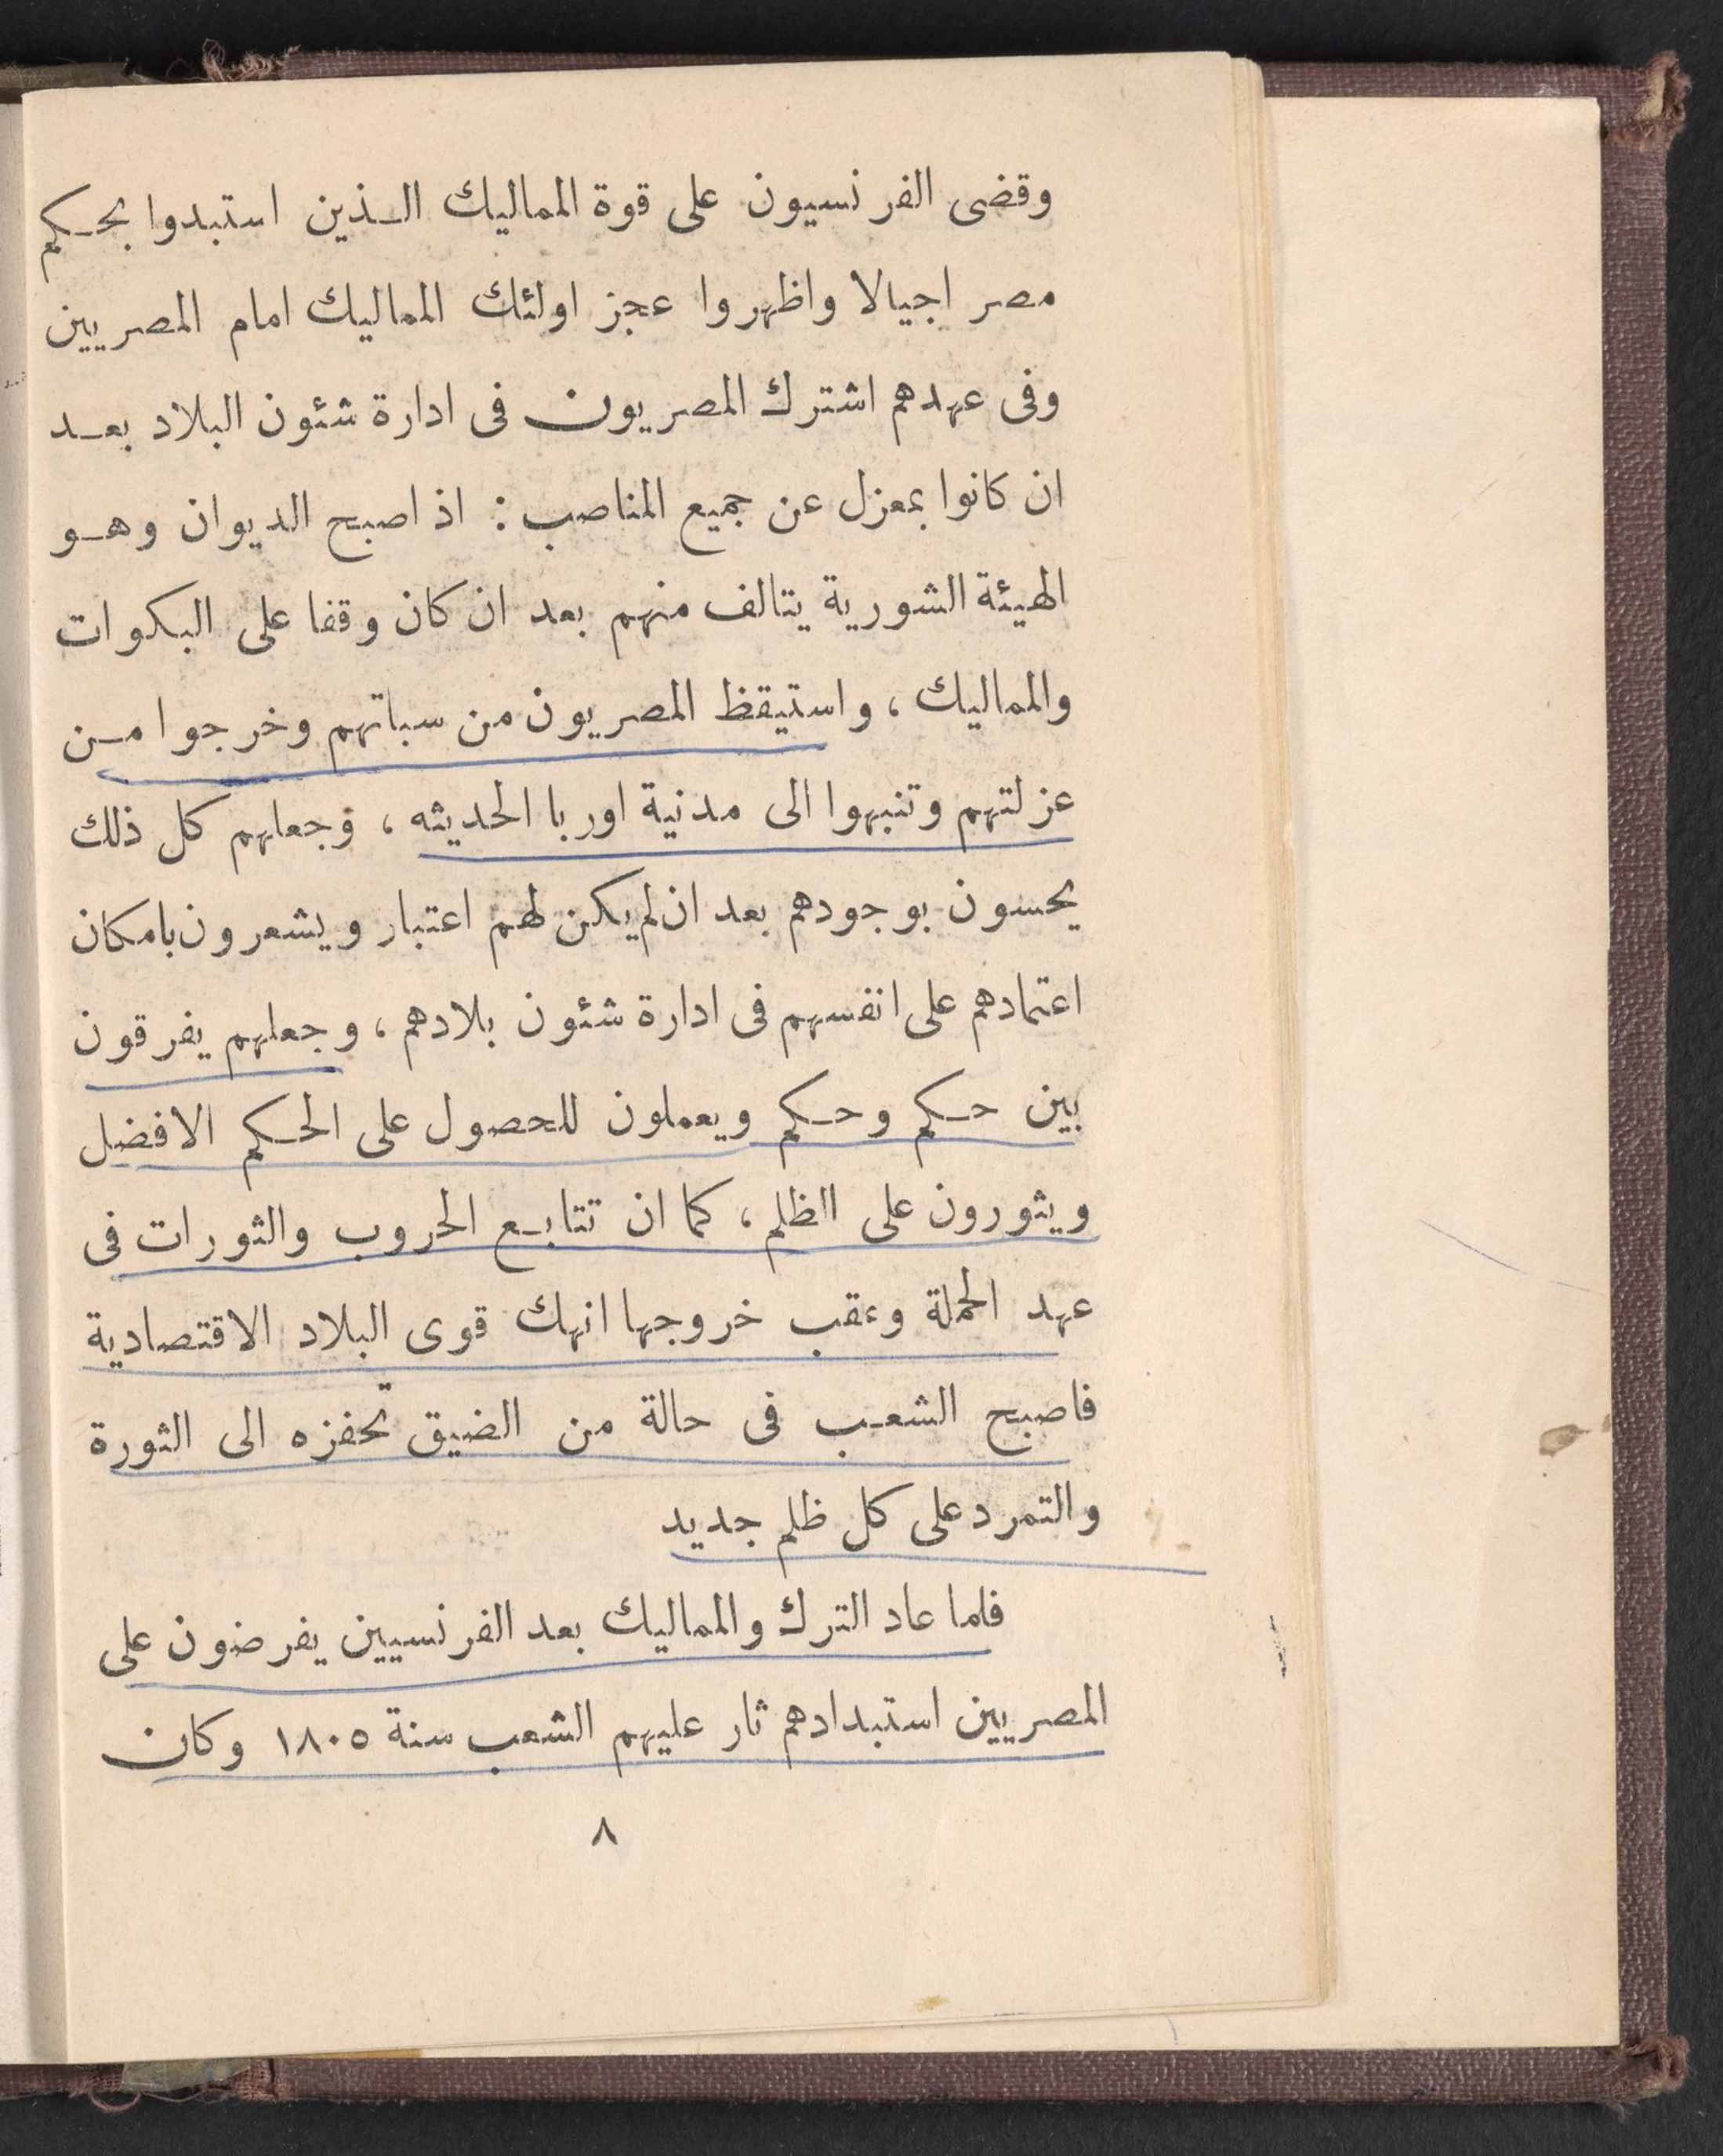 وقضى الفرنسيون على قوة المماليك الـذين استبدوا بحـكم
مصر اجيالا واظهروا عجز اولئك المماليك امام المصريين
وفى عهدهم اشترك المصريون فى ادارة شئون البلاد بعـد
ان كانوا بمعزل عن جميع المناصب : اذ اصبح الديوان وهـو
الهيئة الشورية يتالف منهم بعد ان كان وقفا على البكوات
والمماليك ، واستيقظ المصريون من سباتهم وخرجوا مـن
عزلتهم وتنبهوا الى مدنية اوربا الحديثه ، وجعلهم كل ذلك
يحسون بوجودهم بعد ان لم يكن لهم اعتبار ويشعرون بامكان
اعتمادهم على انفسهم فى ادارة شئون بلادهم ، وجعلهم يفرقون
بين حـكم وحـكم ويعملون للحصول على الحـكم الافضل
ويثورون على الظلم ، كما ان تتابـع الحروب والثورات فى
عهد الحملة وعقب خروجها انهك قوى البلاد الاقتصادية
فاصبح الشعـب فى حالة من الضيق تحفزه الى الثورة
والتمرد على كل ظلم جديد
فلما عاد الترك والمماليك بعد الفرنسيين يفرضون على
المصريين استبدادهم ثار عليهم الشعب سنة ١٨٠٥ وكان
٨